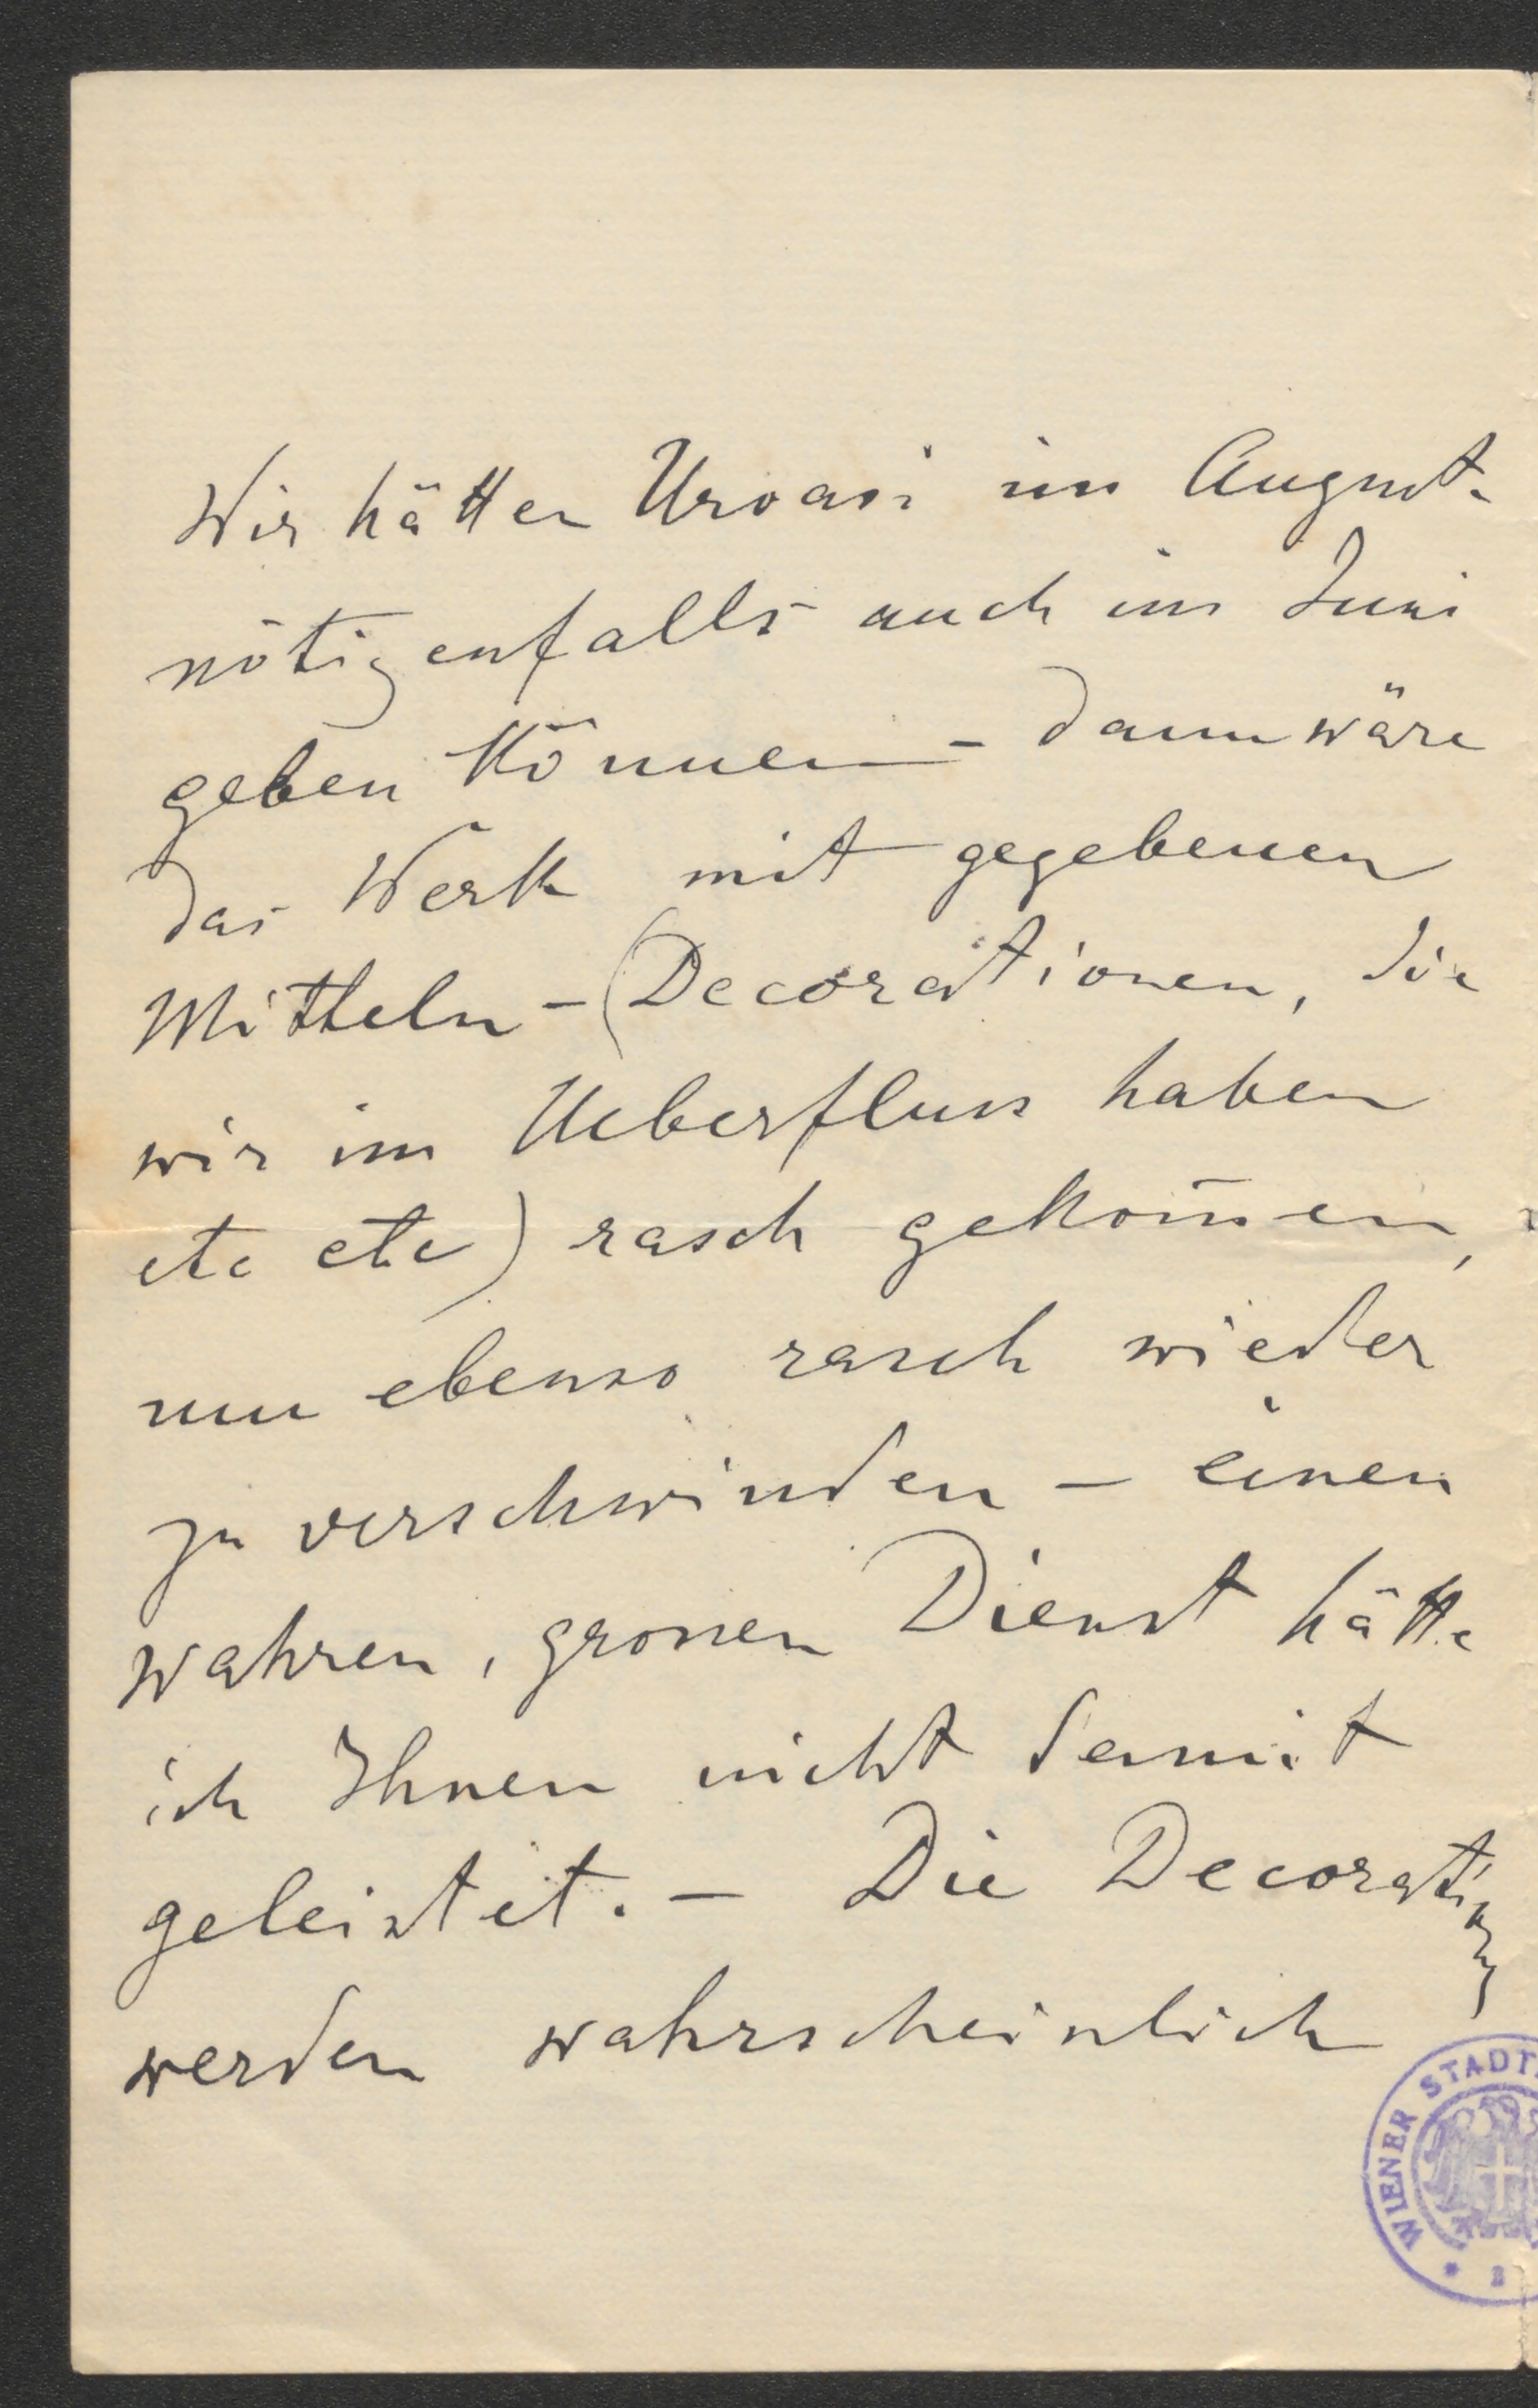 Wir hätten Urvasi im August-
nötigenfalls auch im Juni
geben können – dann wäre
das Werk mit gegebenen
Mitteln – (Decorationen, die
wir im Ueberfluss haben
etc etc) rasch gekom̅en,
um ebenso rasch wieder
zu verschwinden – einen
wahren, grossen Dienst hätte
ich Ihnen nicht damit
geleistet. – Die Decorationen
werden wahrscheinlich
WIENER STADT